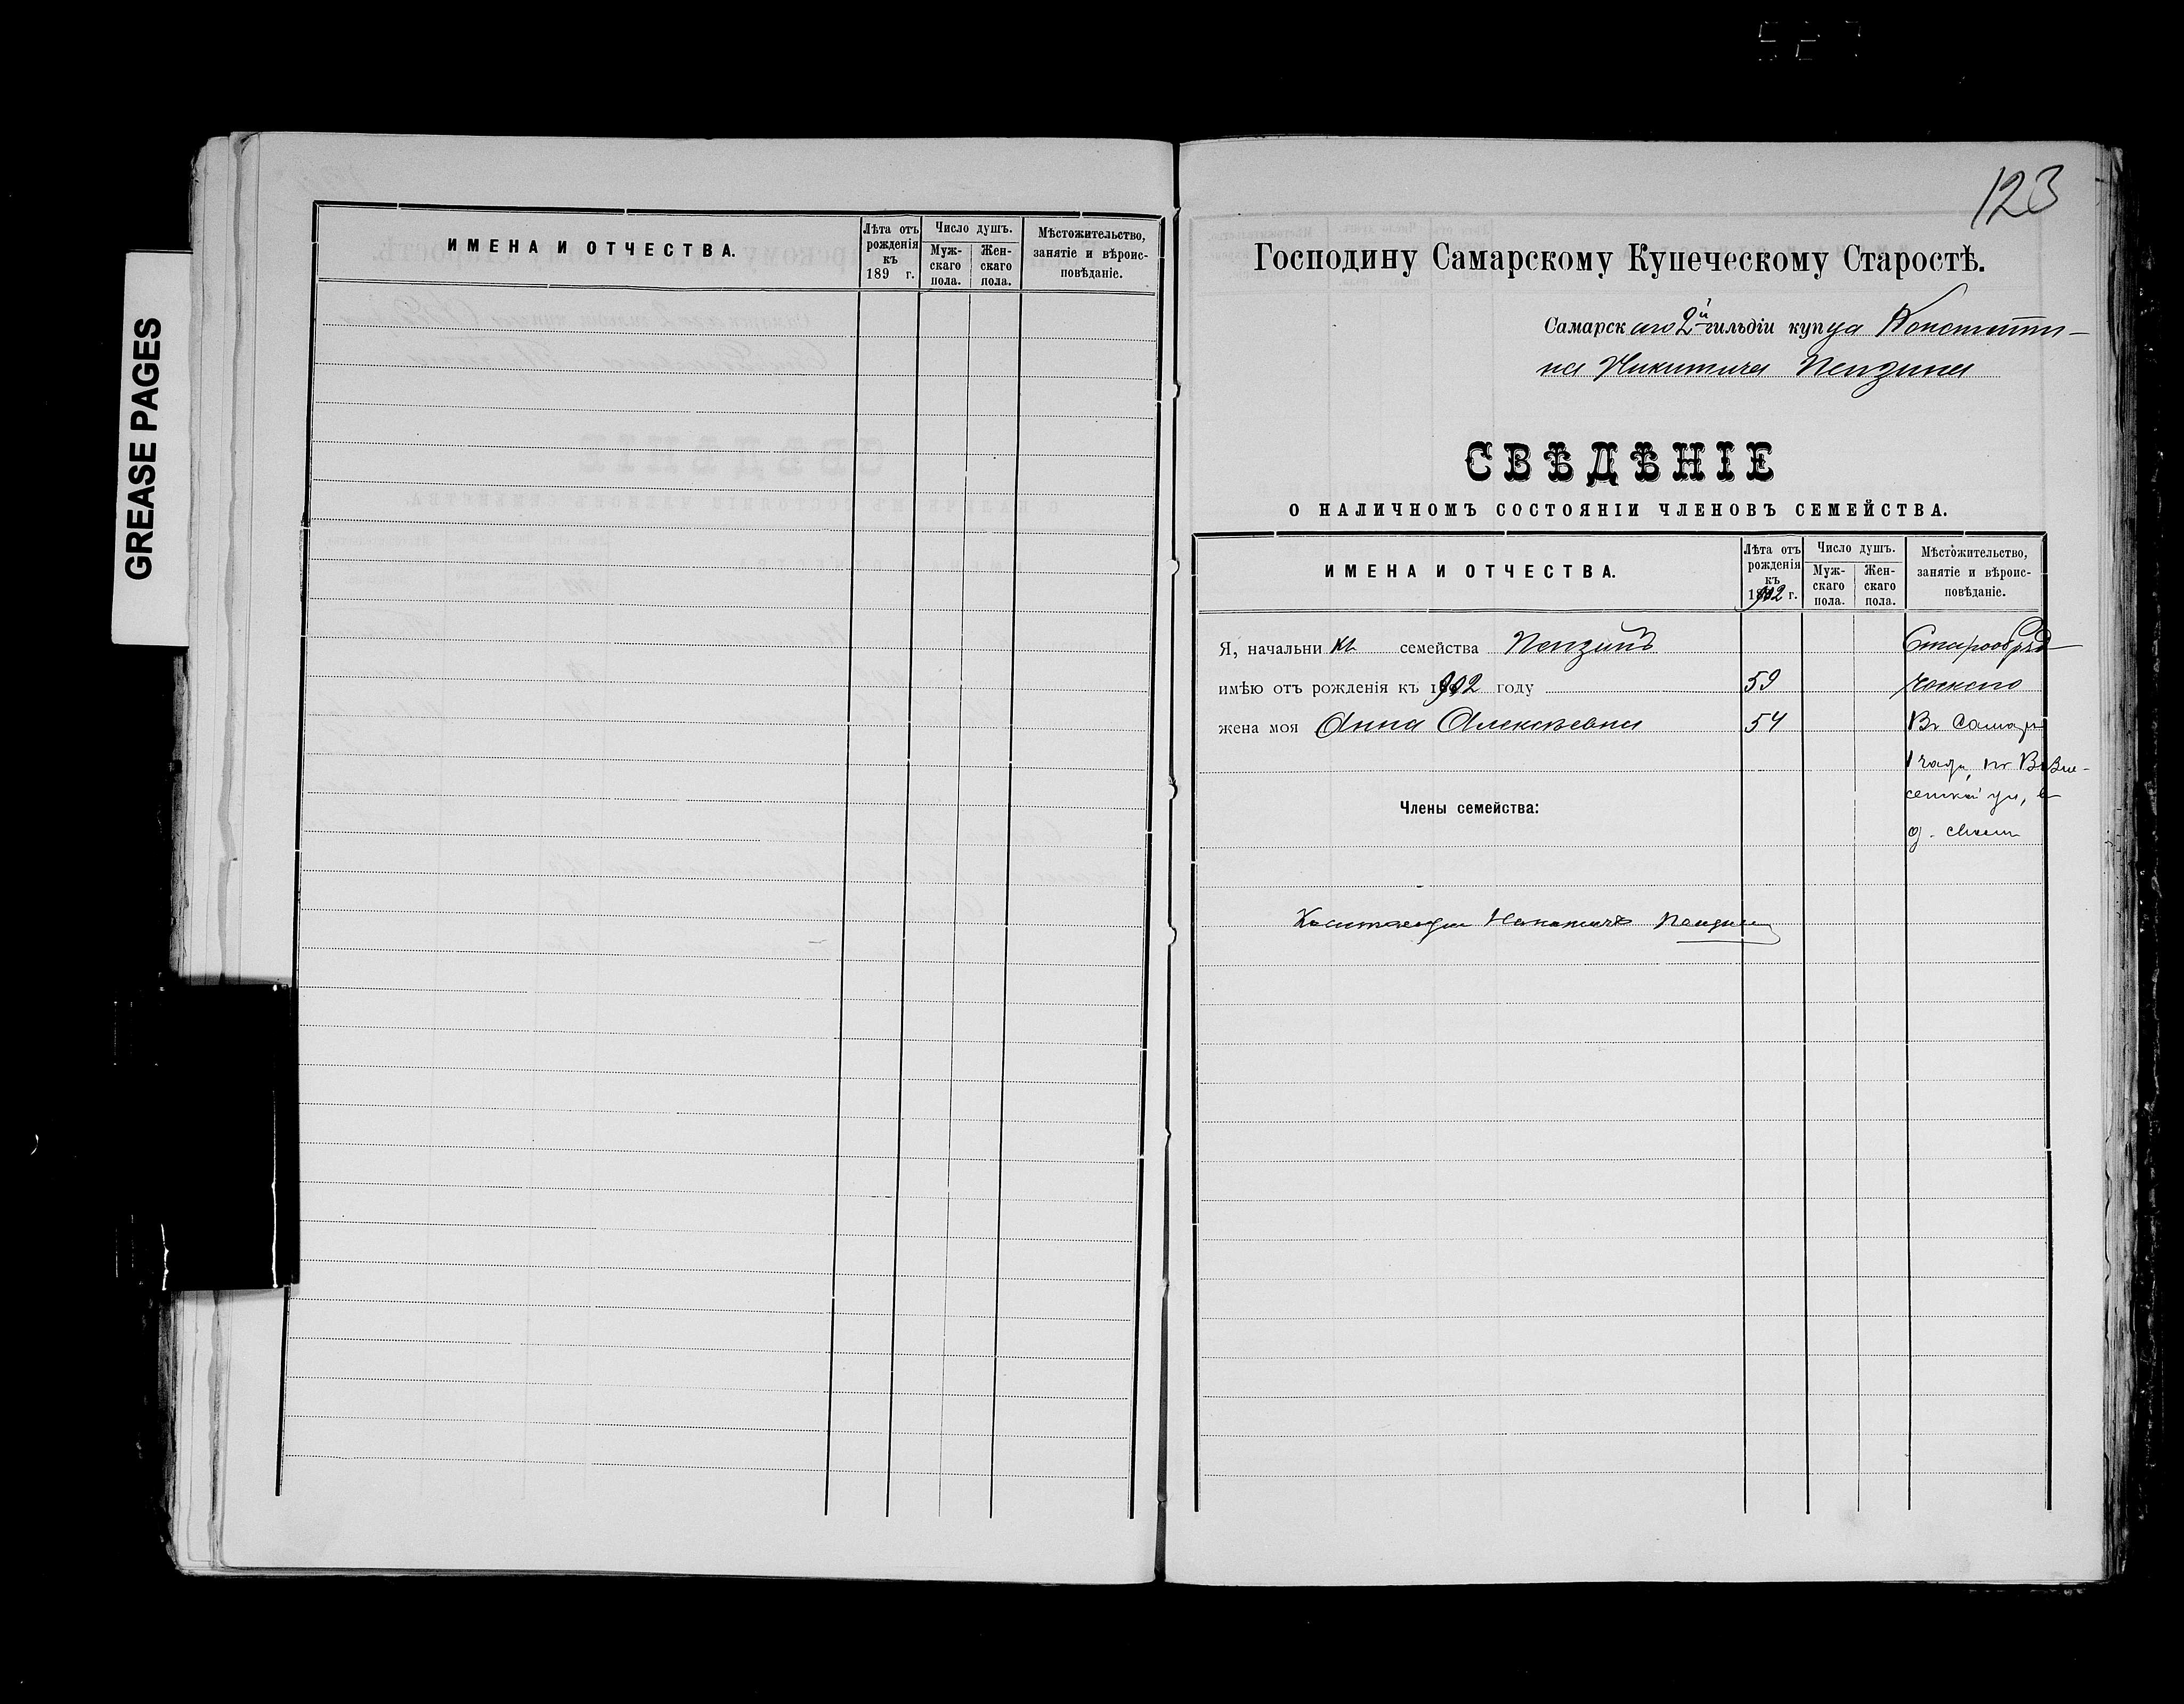 GREASE PAGES
ИМЕНА И ОТЧЕСТВА.
Лѣта отъ рожденія къ 189 г.
Число душъ.
Мужскаго пола.
Женскаго пола.
Мѣстожительство, занятіе и вѣроисповѣданіе.
123
Господину Самарскому Купеческому Старостѣ.
Самарскаго 2й гильдіи купца Константи-
на Никитича Пензина
СВѢДѢНІЕ
О НАЛИЧНОМЪ СОСТОЯНІИ ЧЛЕНОВЪ СЕМЕЙСТВА.
ИМЕНА И ОТЧЕСТВА.
Лѣта отъ
рожденія
къ
1902 г.
Число душъ.
Муж-
скаго
пола.
Жен-
скаго
пола.
Мѣстожительство,
занятіе и вѣроис-
повѣданіе.
Я, начальникъ семейства Пензинъ Старообряд
имѣю отъ рожденія къ 1902 году 59 ческаго
жена моя Анна Алексѣевна 54 Въ Самар
1 части, по Возне-
сенской ул, в
д. своем
Члены семейства:
Константин Никитичъ Пензин